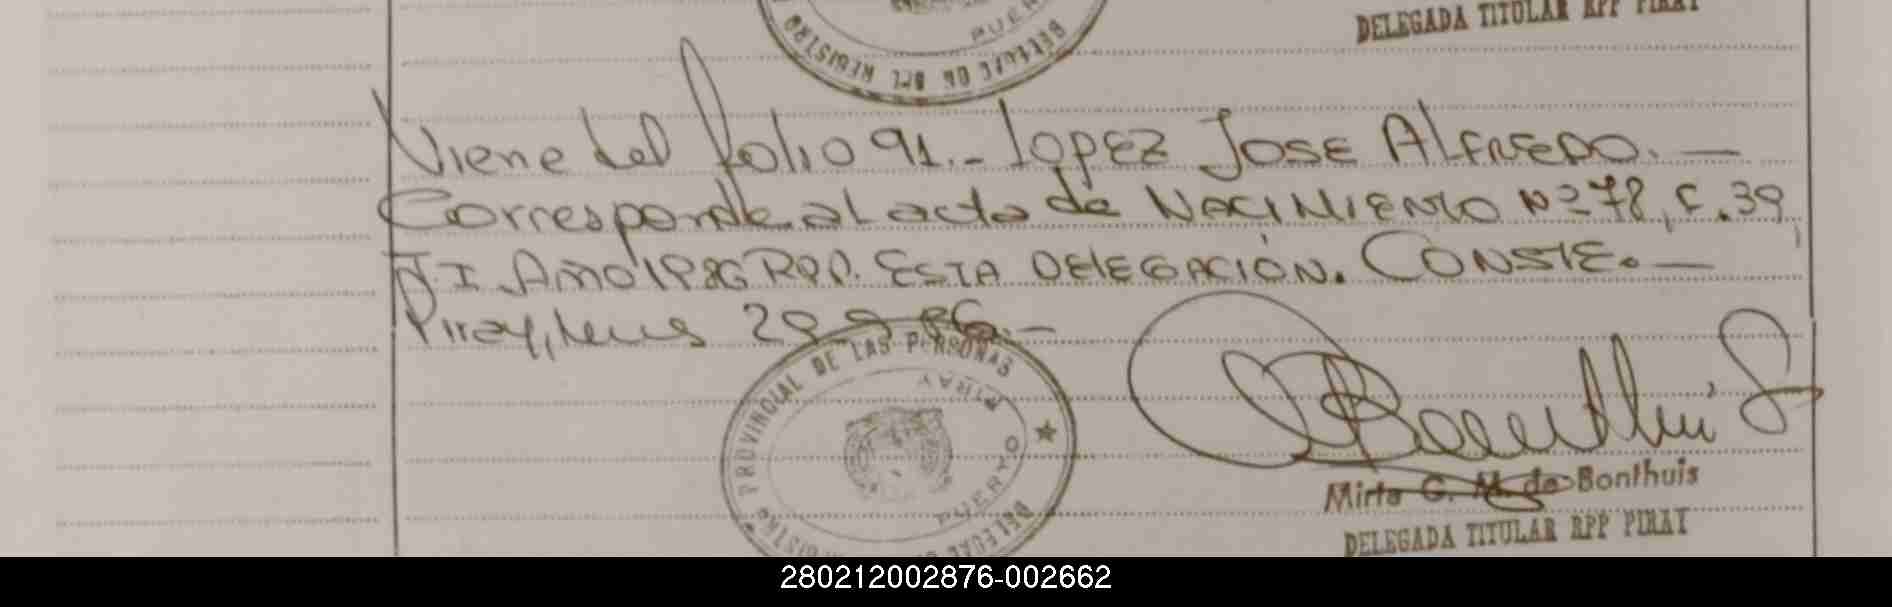 DELEGADA TITULAR RPP PIRAY
PUER
DELEGAC ON DEL REGISTRO
Viene del folio 91.- LOPEZ JOSE ALFREDO. —
Corresponde al acta de NACIMIENTO Nº 78, F. 39,
T I Año 1986 RPP. ESTA DELEGACIÓN. CONSTE. —
Piray, Mnes 29 9 86.-
REGISTRO PROVINCIAL DE LAS PERSONAS
PUERTO PIRAY
Mirta G. M. de Bonthuis
DELEGADA TITULAR RPP PIRAY
280212002876-002662